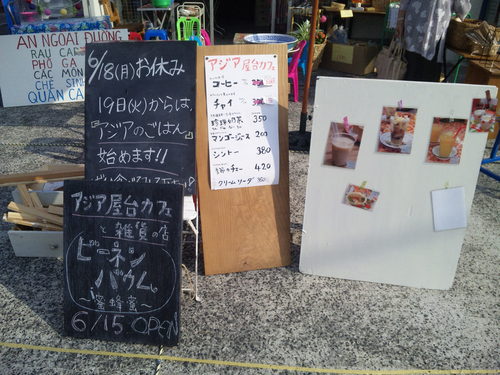 AN NGOAI DUONG
RAU CAU
PHO GA
CAC MON
CHE SINH
QUAN CA
6/18(月)お休み
19日(火)からは、
『アジアのごはん』
始めます!!
アジア屋台カフェ
と雑貨の店
ビーネン
バウム。
〜蜜蜂蜜〜
6/15 OPEN
アジア屋台カフェ
コーヒー
チャイ
珍珠奶茶 350
マンゴージュース 200
シントー 380
チェー 420
クリームソーダ